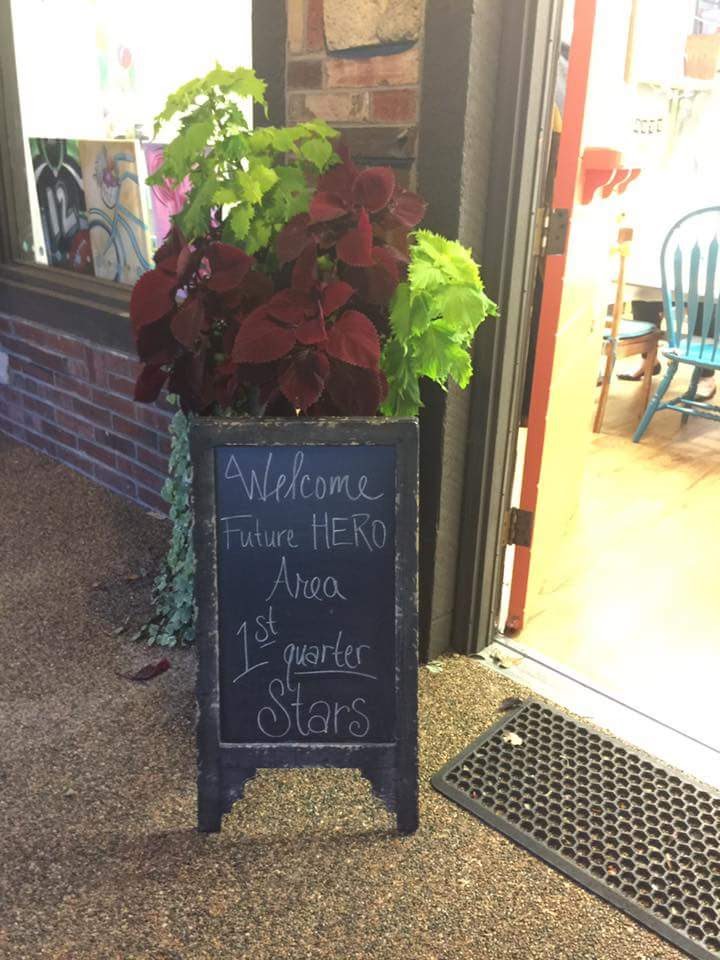 12
Welcome
Future HERO
Area
1st quarter
Stars